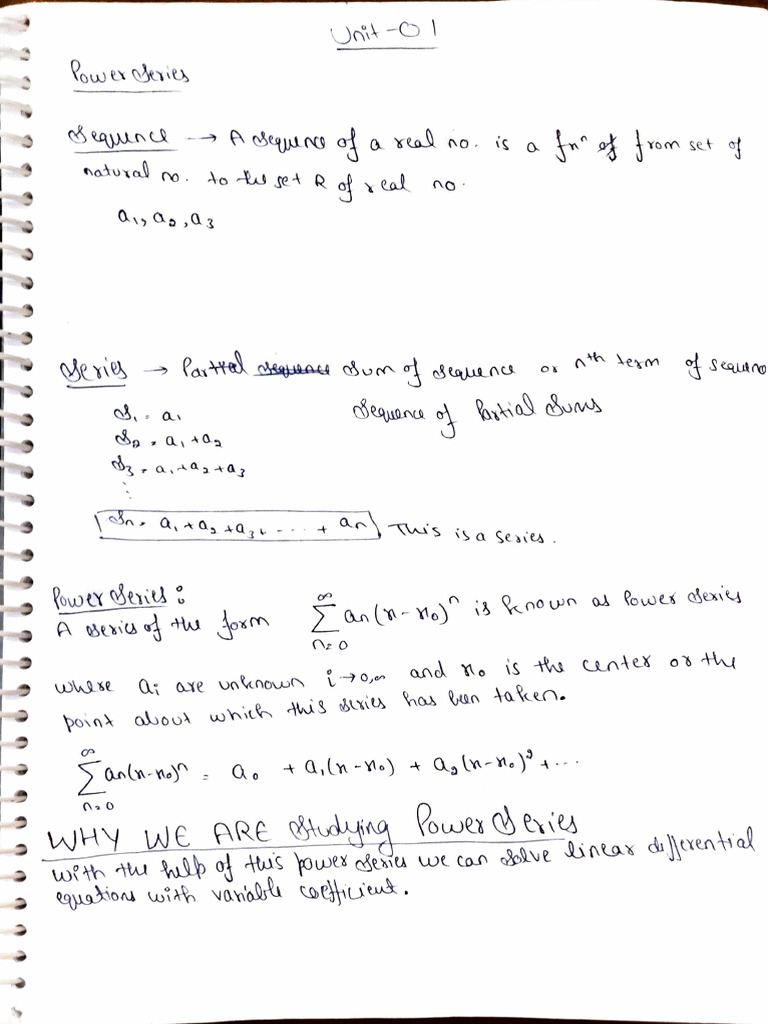 Unit-01
Power Series
Sequence → A sequence of a real no. is a fnⁿ of from set of
natural no. to the set R of real no.
a₁, a₂, a₃
Series → Partial sequence Sum of sequence or nᵗʰ term of sequenc
Sequence of Partial Sums
S₁ = a₁
S₂ = a₁ + a₂
S₃ = a₁ + a₂ + a₃
⋮
Sₙ = a₁ + a₂ + a₃ + .... + aₙ This is a series.
Power Series:
A series of the form ∑_{n=0}^{∞} aₙ(x-x₀)ⁿ is known as Power Series
where aᵢ are unknown i → 0,∞ and x₀ is the center or the
point about which this series has been taken.
∑_{n=0}^{∞} aₙ(x-x₀)ⁿ = a₀ + a₁(x-x₀) + a₂(x-x₀)² + ...
WHY WE ARE Studying Power Series
with the help of this power series we can solve linear differential
equations with variable coefficient.